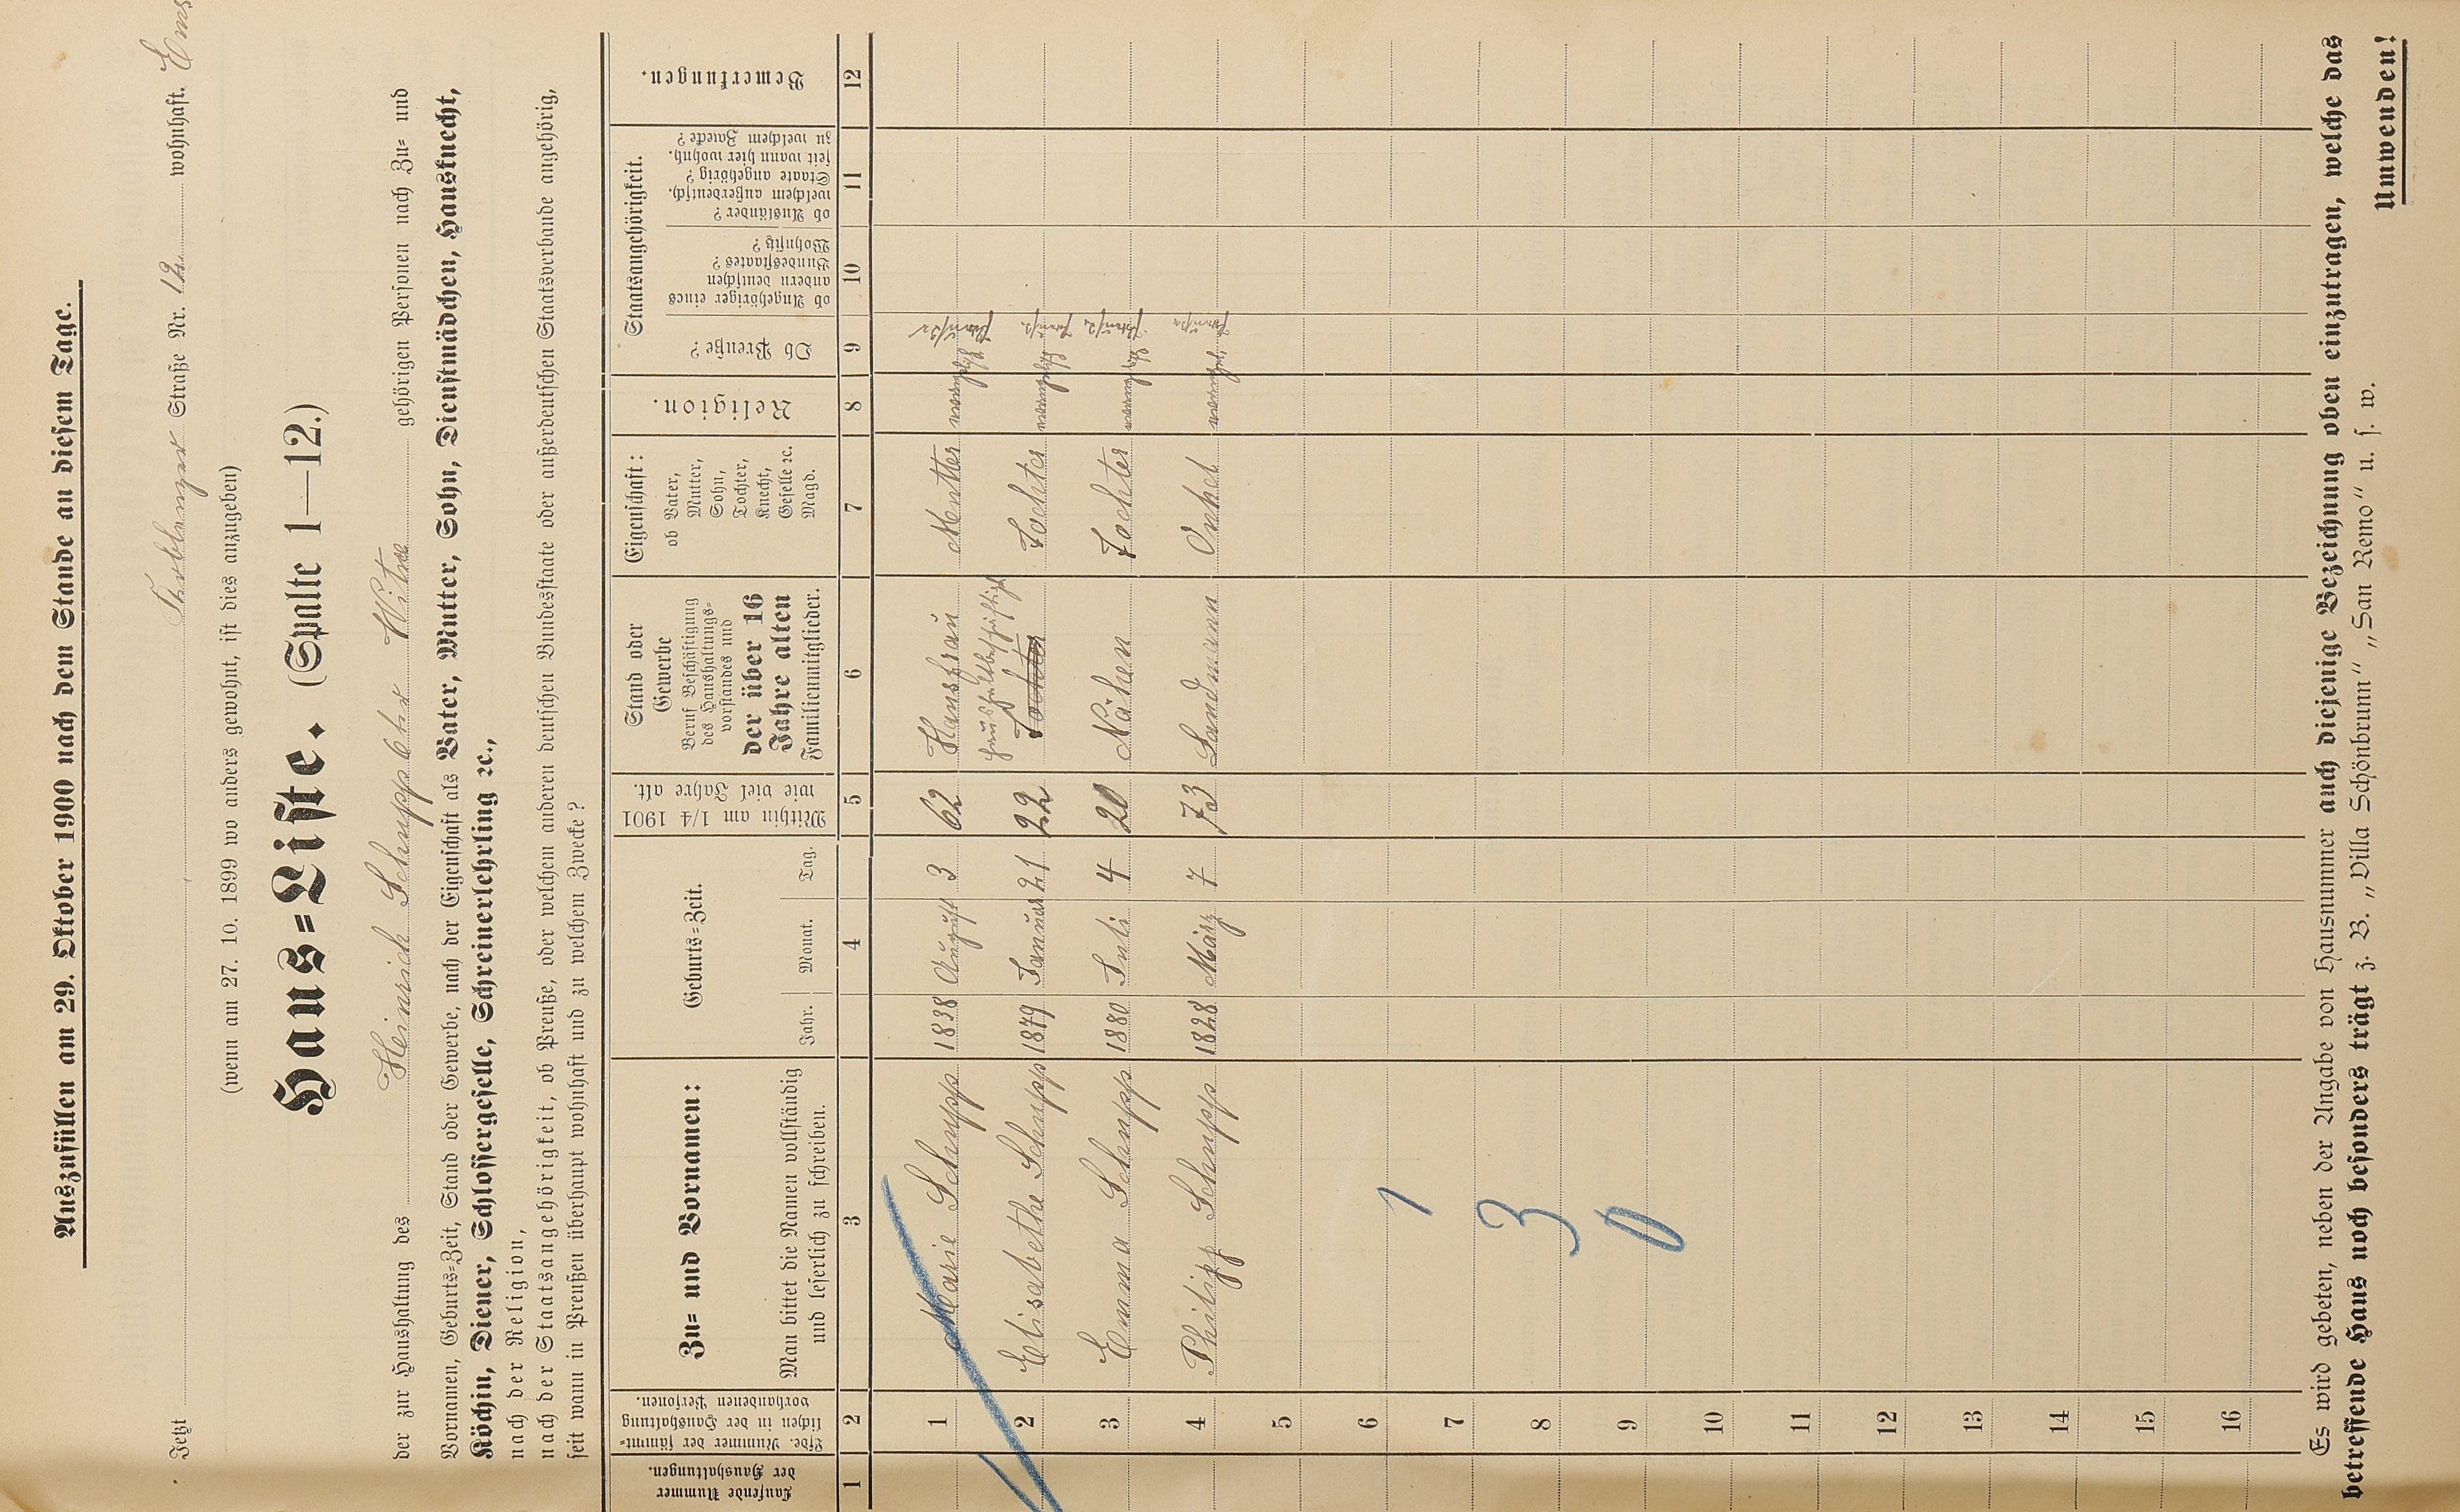 Auszufüllen am 29. Oktober 1900 nach dem Stande an diesem Tage.
Jetzt Koblenzer Straße Nr. 12 wohnhaft. Ems
(wenn am 27. 10. 1899 wo anders gewohnt, ist dies anzugeben)
Haus=Liste. (Spalte 1—12.)
der zur Haushaltung des Heinrich Schupp 6ter Witwe gehörigen Personen nach Zu= und
Vornamen, Geburts=Zeit, Stand oder Gewerbe, nach der Eigenschaft als Vater, Mutter, Sohn, Dienstmädchen, Hausknecht,
Köchin, Diener, Schlossergeselle, Schreinerlehrling ꝛc.,
nach der Religion,
nach der Staatsangehörigkeit, ob Preuße, oder welchem anderen deutschen Bundesstaate oder außerdeutschen Staatsverbande angehörig,
seit wann in Preußen überhaupt wohnhaft und zu welchem Zwecke?
Laufende Nummer
der Haushaltungen.
Lfde. Nummer der sämmt=
lichen in der Haushaltung
vorhandenen Personen.
Zu= und Vornamen:
Man bittet die Namen vollständig
und leserlich zu schreiben.
Geburts=Zeit.
Jahr. Monat. Tag.
Mithin am 1/4 1901
wie viel Jahre alt.
Stand oder
Gewerbe
Beruf Beschäftigung
des Haushaltungs=
vorstandes und
der über 16
Jahre alten
Familienmitglieder.
Eigenschaft:
ob Vater,
Mutter,
Sohn,
Tochter,
Knecht,
Geselle ꝛc.
Magd.
Religion.
Staatsangehörigkeit.
Ob Preuße?
ob Angehöriger eines
andern deutschen
Bundesstaates?
Wohnsitz?
ob Ausländer?
welchem außerdeutsch.
Staate angehörig?
seit wann hier wohnh.
zu welchem Zwecke?
Bemerkungen.
1 2 3 4 5 6 7 8 9 10 11 12
1 Marie Schupp 1838 August 3 62 Hausfrau Mutter evangelisch
2 Elisabethe Schupp 1879 Januar 21 22 Tochter Tochter evangelisch
3 Emma Schupp 1880 Juli 4 20 Nähen Tochter evangelisch
4 Philipp Schupp 1828 März 7 73 Landmann Onkel evangel.
5
6
7
8
9
10
11
12
13
14
15
16
1
3
0
Es wird gebeten, neben der Angabe von Hausnummer auch diejenige Bezeichnung oben einzutragen, welche das
betreffende Haus noch besonders trägt z. B. „Villa Schönbrunn“ „San Remo“ u. s. w.
Umwenden!